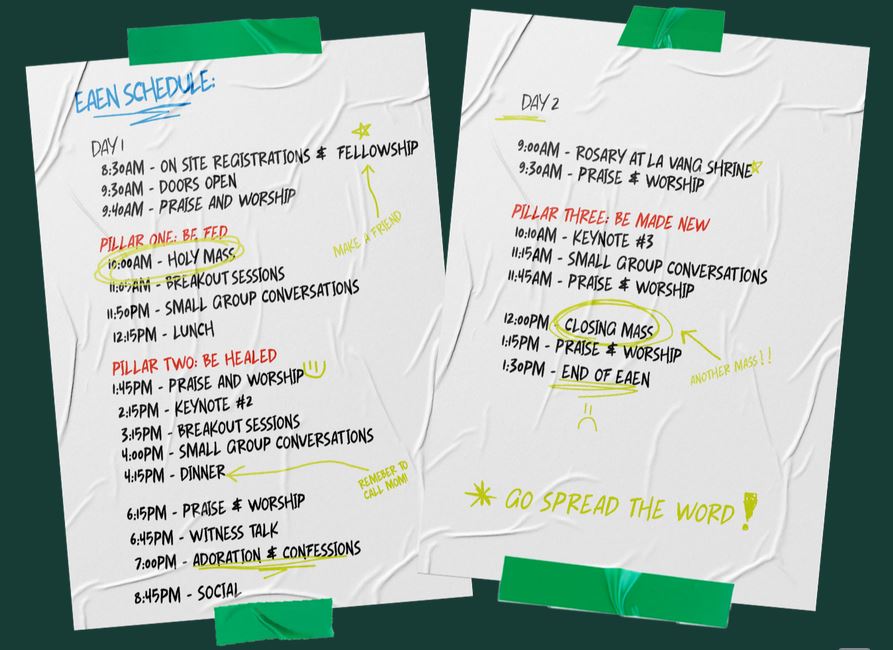 EAEN SCHEDULE:
DAY 1
8:30AM - ON SITE REGISTRATIONS & FELLOWSHIP
9:30AM - DOORS OPEN
9:40AM - PRAISE AND WORSHIP
MAKE A FRIEND
PILLAR ONE: BE FED
10:00AM - HOLY MASS
11:05AM - BREAKOUT SESSIONS
11:50PM - SMALL GROUP CONVERSATIONS
12:15PM - LUNCH
PILLAR TWO: BE HEALED
1:45PM - PRAISE AND WORSHIP
2:15PM - KEYNOTE #2
3:15PM - BREAKOUT SESSIONS
4:00PM - SMALL GROUP CONVERSATIONS
4:15PM - DINNER
REMEBER TO
CALL MOM!
6:15PM - PRAISE & WORSHIP
6:45PM - WITNESS TALK
7:00PM - ADORATION & CONFESSIONS
8:45PM - SOCIAL
DAY 2
9:00AM - ROSARY AT LA VANG SHRINE
9:30AM - PRAISE & WORSHIP
PILLAR THREE: BE MADE NEW
10:10AM - KEYNOTE #3
11:15AM - SMALL GROUP CONVERSATIONS
11:45AM - PRAISE & WORSHIP
12:00PM - CLOSING MASS
1:15PM - PRAISE & WORSHIP
1:30PM - END OF EAEN
ANOTHER MASS!!
GO SPREAD THE WORD!